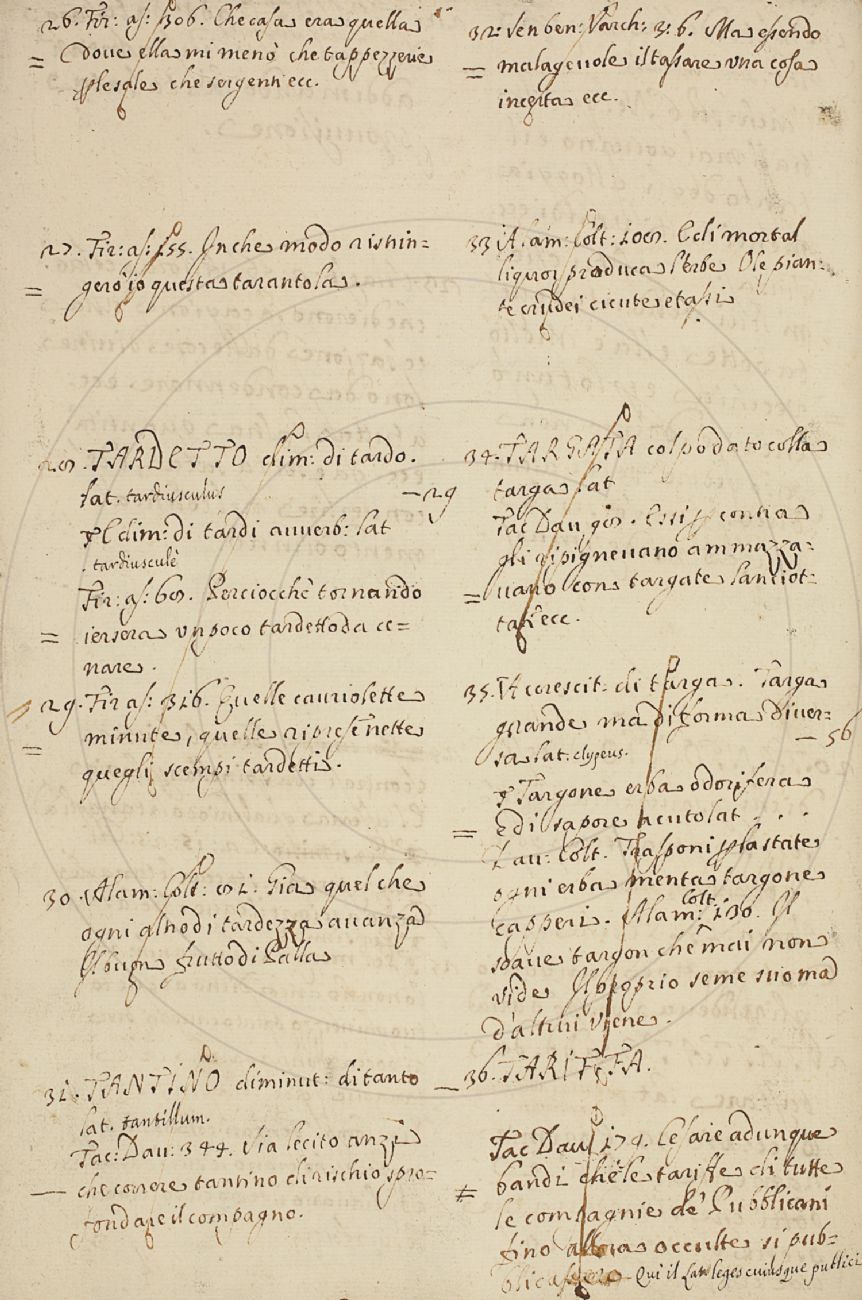 26. Fir: as: 306. Che casa era quella
dove ella mi menò che tappezzerie
che sergenti ecc.
27. Fir: as: 155. In che modo ristrin=
gerò io questa tarantola.
28. TARDETTO dim: di tardo.
lat. tardiusculus
– 29
E dim: di tardi avverb: lat
tardiusculè
Fir: as: 68. Perciocchè tornando
iersera un poco tardetto da ce=
nare.
29. Fir as: 316. Quelle cauriolette
minute, quelle ripresenette
quegli scempi tardetti.
30. Alam: Colt: 81. Gia quel che
ogni altro di tardezza avanza
Il buon frutto di Palla
31. TANTINO diminut: di tanto
lat. tantillum.
Tac: Dav: 344. Sia lecito anzi
che correre tantino di rischio spro=
fondare il compagno.
32: Sen ben: Varch: 3: 6. Ma essendo
malagevole il tassare una cosa
incerta ecc.
33 Alam: Colt: 108. E di mortal
liquor produca l'erbe O le pian:
te crudei cicute e tassi
34. TARGATA colpo dato colla
targa lat
Tac Dav 98. Essi contra
gli rispignevano ammazza:
vano con targate lanciot:
tate ecc.
35. Accrescit: di targa. Targa
grande ma di forma diver=
sa lat: clypeus.
– 56
Targone erba odorifera
E di sapore acuto lat . . .
Dav: Colt. Trasponi state
ogni erba menta targone
capperi. Alam: Colt: 130. Il
soave targon che mai non
vide Il proprio seme suo ma
d'altrui viene.
36. TARIFFA.
Tac Dav 174. Cesare adunque
bandì che le tariffe di tutte
le compagnie de' Pubblicani
fino allora occulte si pub=
blicassero Qui il Lat leges cuiusque publici